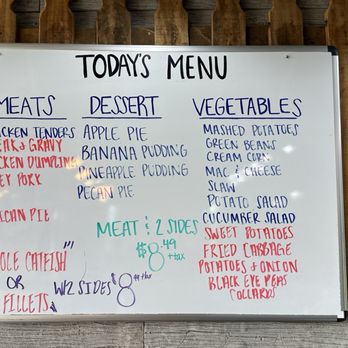 TODAY'S MENU
MEATS
CKEN TENDERS
EAK & GRAVY
CKEN DUMPLING
EY PORK
ICAN PIE
OLE CATFISH
OR
FILLETS
W/2 SIDES $8 +tax
DESSERT
APPLE PIE
BANANA PUDDING
PINEAPPLE PUDDING
PECAN PIE
MEAT & 2 SIDES
$8.49
+tax
VEGETABLES
MASHED POTATOES
GREEN BEANS
CREAM CORN
MAC & CHEESE
SLAW
POTATO SALAD
CUCUMBER SALAD
SWEET POTATOES
FRIED CABBAGE
POTATOES & ONION
BLACK EYE PEAS
COLLARDS